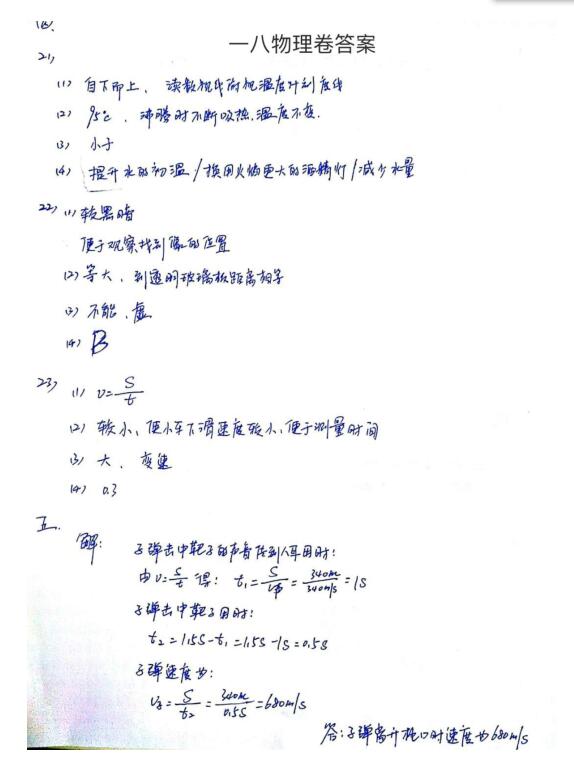 一八物理卷答案
四、
21)
(1) 自下而上、读数视线俯视温度计刻度线
(2) 95℃、沸腾时不断吸热,温度不变.
(3) 小于
(4) 提升水的初温/换用火焰更大的酒精灯/减少水量
22) (1) 较黑暗
便于观察找到像的位置
(2) 等大、到透明玻璃板距离相等
(3) 不能、虚
(4) B
23) (1) v=S/t
(2) 较小、使小车下滑速度较小、便于测量时间
(3) 大、变速
(4) 0.3
五.
解: 子弹击中靶子的声音传到人耳用时:
由v=S/t 得: t₁=S/v声=340m/340m/s=1s
子弹击中靶子用时:
t₂=1.5s-t₁=1.5s-1s=0.5s
子弹速度为:
v₂=S/t₂=340m/0.5s=680m/s
答:子弹离开枪口时速度为680m/s